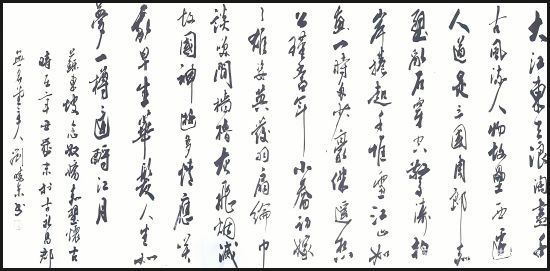 大江東去浪淘盡千
古風流人物故壘西邊
人道是三國周郎赤
壁亂石穿空驚濤拍
岸捲起千堆雪江山如
畫一時多少豪傑遙想
公瑾當年小喬初嫁
了雄姿英發羽扇綸巾
談笑間檣櫓灰飛烟滅
故國神遊多情應笑
我早生華髮人生如
夢一樽還酹江月
蘇東坡念奴嬌赤壁懷古
時在辛丑歲末於古永昌郡
主人劉書